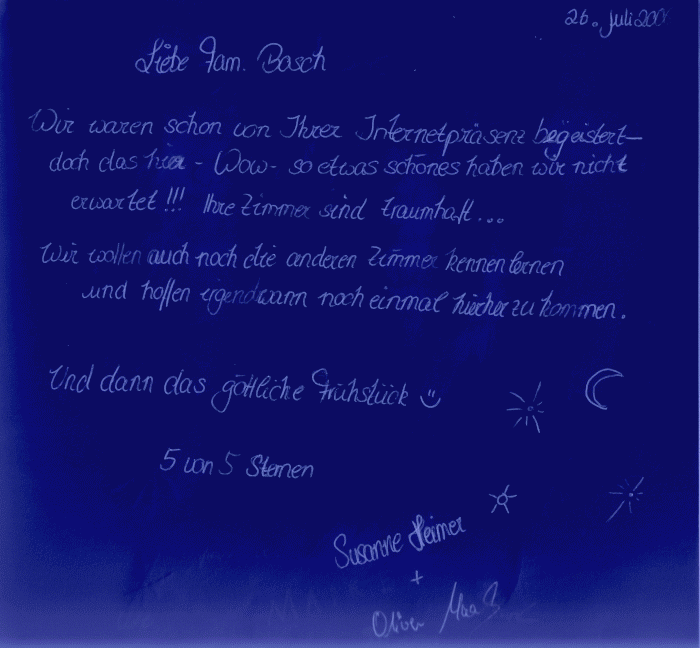 26. Juli
Liebe Fam. Bosch
Wir waren schon von Ihrer Internetpräsenz begeistert –
doch das hier - Wow - so etwas schönes haben wir nicht
erwartet !!! Ihre Zimmer sind traumhaft...
Wir wollen auch noch die anderen Zimmer kennenlernen
und hoffen irgendwann noch einmal hierher zu kommen.
Und dann das göttliche Frühstück
5 von 5 Sternen
Susanne Heimer
+
Oliver